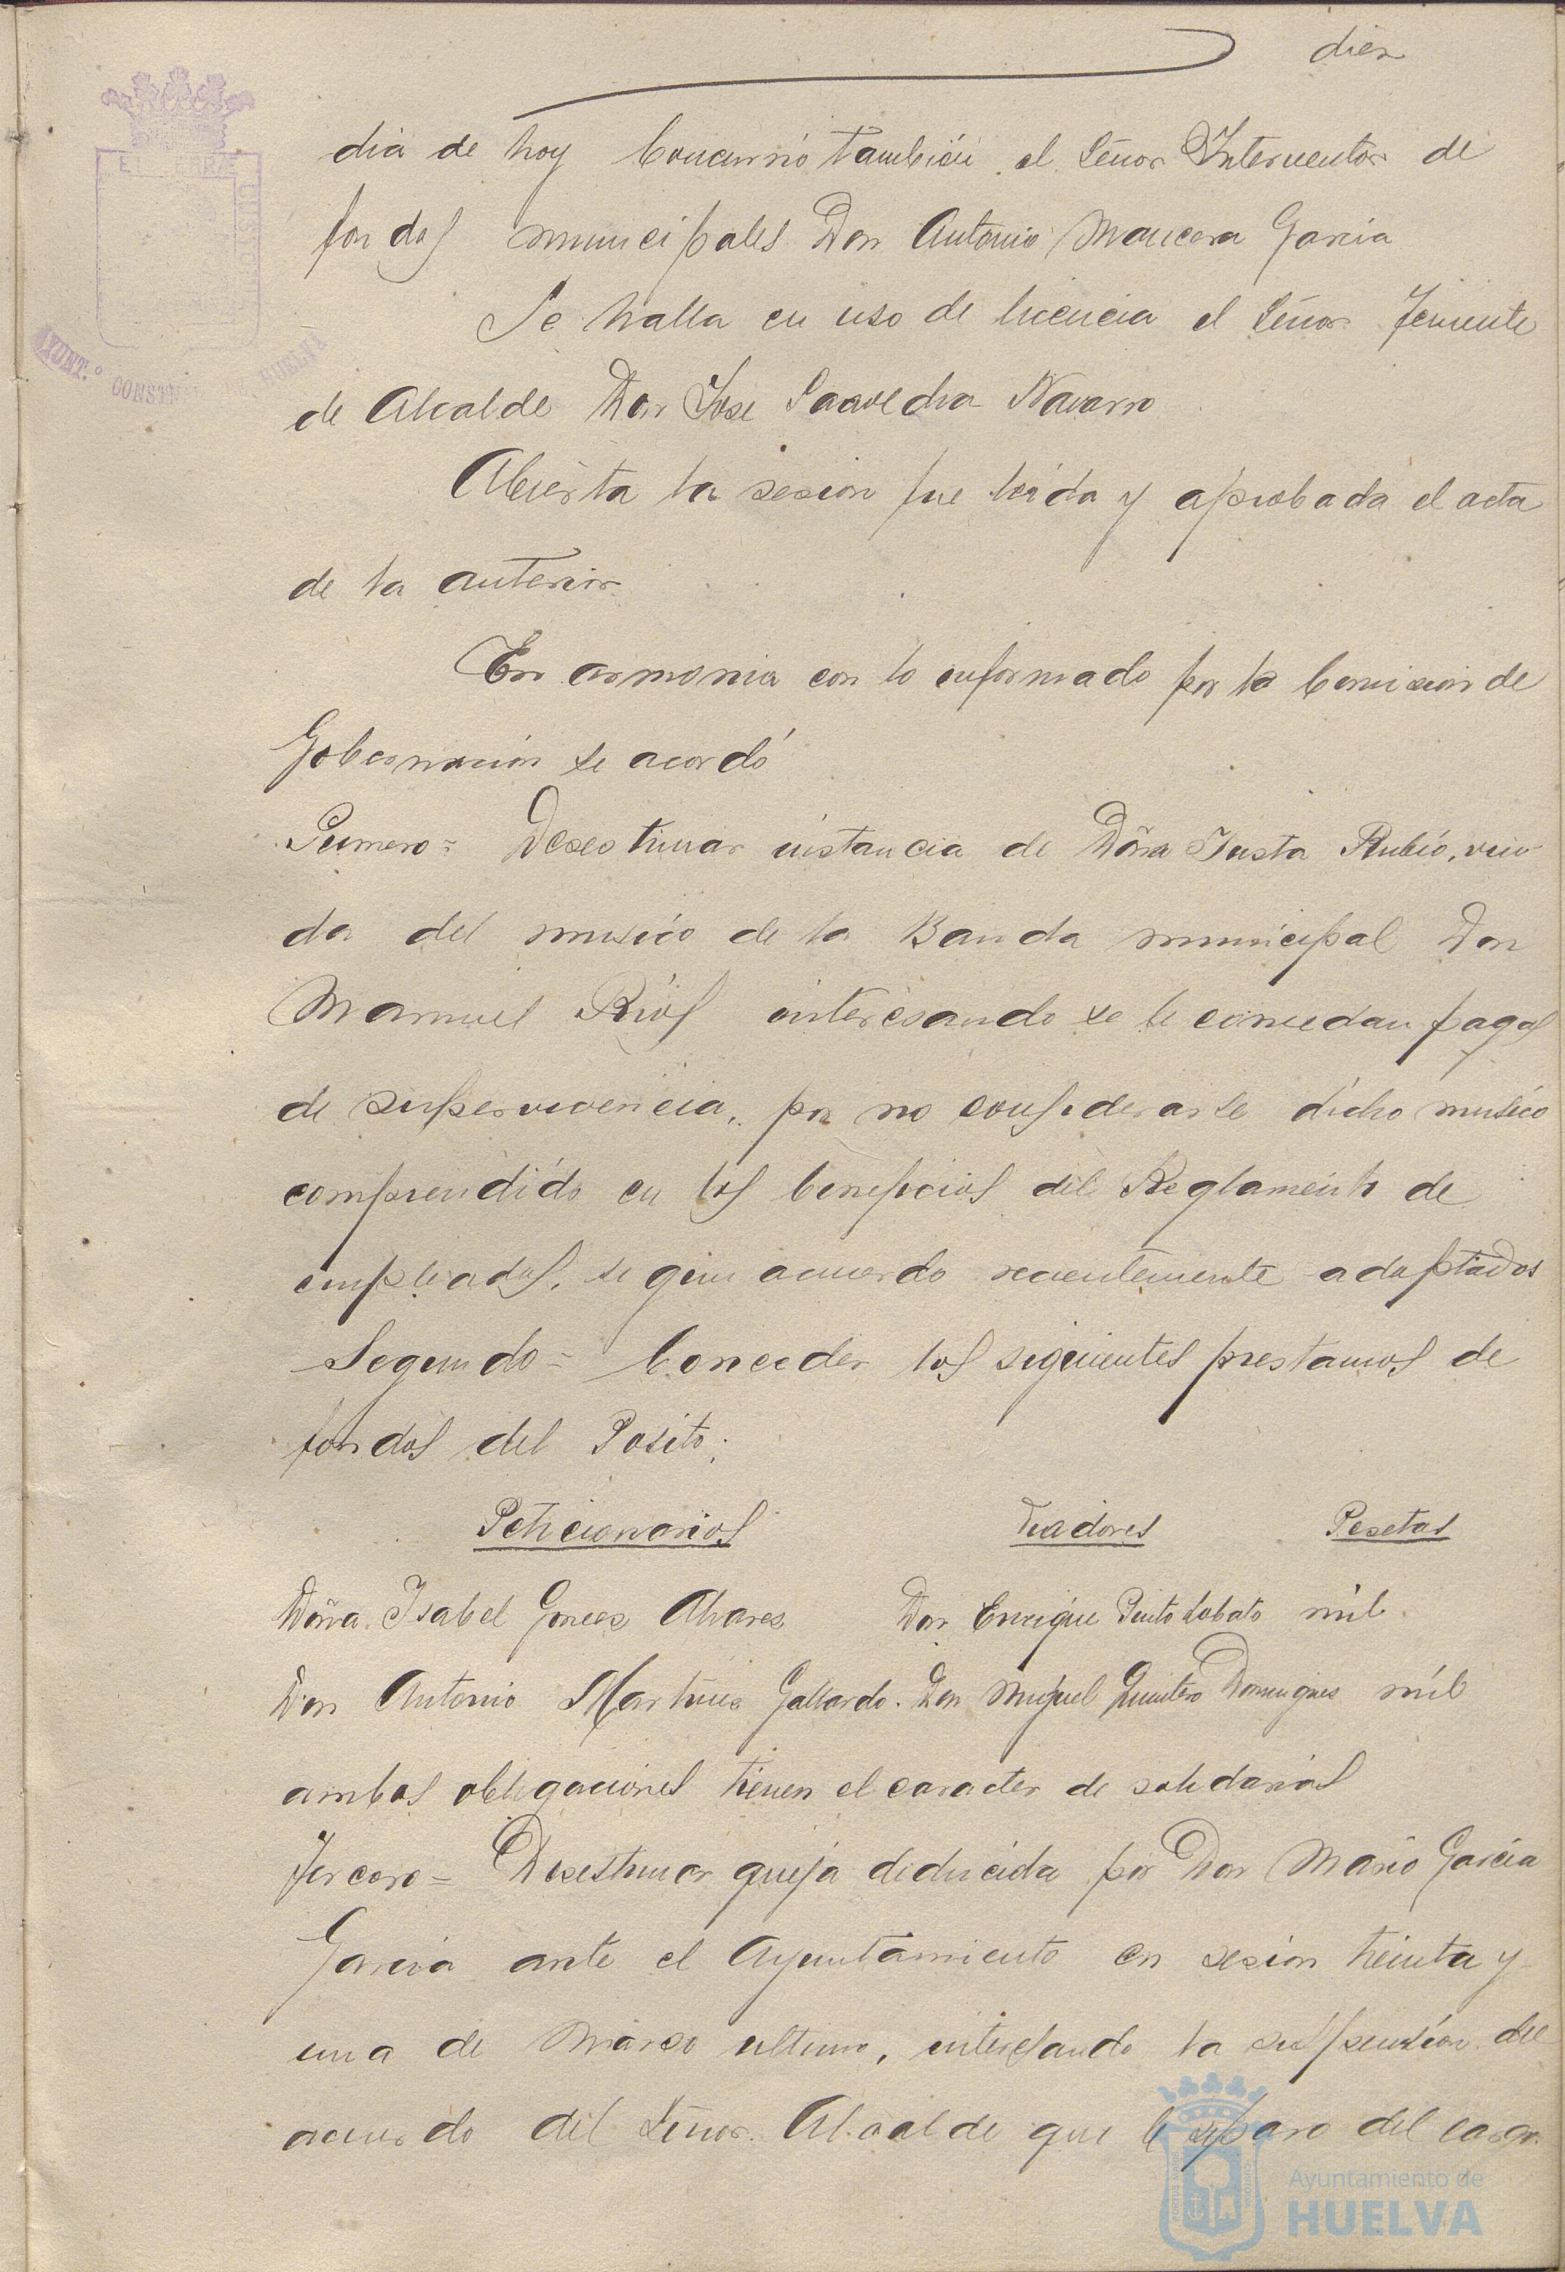 diez
dia de hoy Concurrió tambien el Señor Interventor de
fondos municipales Don Antonio Mancera Garcia
Se halla en uso de licencia el Señor Teniente
de Alcalde Don Jose Saavedra Navarro
Abierta la sesion fue leida y aprobada el acta
de la anterior
En armonia con lo informado por la Comision de
Gobernacion se acordó
Primero = Desestimar instancia de Doña Justa Rubio, viu-
da del musico de la Banda municipal Don
Manuel Rios interesando se le concedan pagas
de supervivencia, por no considerarse dicho musico
comprendido en los beneficios del Reglamento de
empleados, segun acuerdo recientemente adoptados
Segundo = Conceder los siguientes prestamos de
fondos del Posito;
Peticionarios Fiadores Pesetas
Doña Isabel Gomez Alvarez Don Enrique Pinto Lobato mil
Don Antonio Martinez Gallardo. Don Miguel Quintero Dominguez mil
ambas obligaciones tienen el caracter de solidarias
Tercero = Desestimar queja deducida por Don Mario Garcia
Garcia ante el Ayuntamiento en sesion treinta y
una de Marzo ultimo, interesando la suspension del
acuerdo del Señor Alcalde que le separo del cargo
AYUNT.º CONST DE HUELVA
Ayuntamiento de
HUELVA